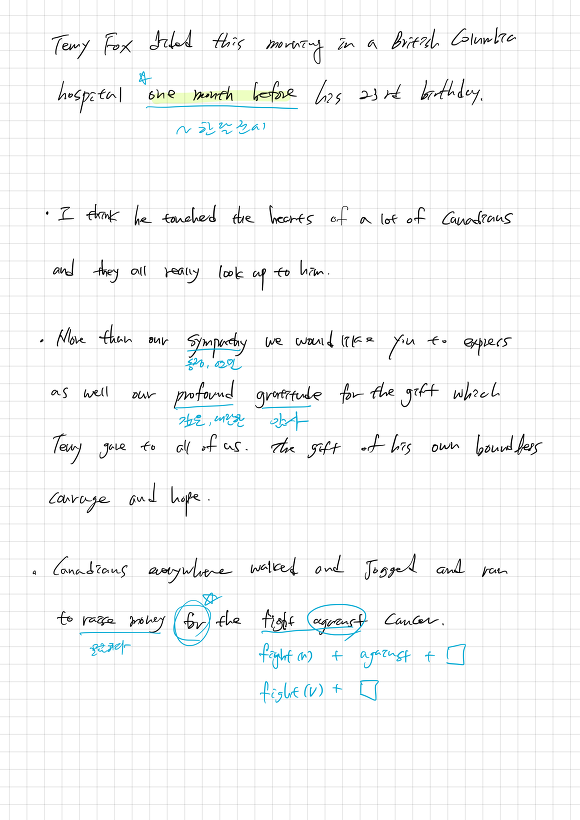 Terry Fox died this morning in a British Columbia
☆
hospital one month before his 23rd birthday.
~ 한 달 전에
· I think he touched the hearts of a lot of Canadians
and they all really look up to him.
· More than our sympathy we would like you to express
동정, 연민
as well our profound gratitude for the gift which
깊은, 감사
Terry gave to all of us. The gift of his own boundless
courage and hope.
· Canadians everywhere walked and jogged and ran
☆
to raise money for the fight against cancer.
fight(n) + against + □
fight(v) + □